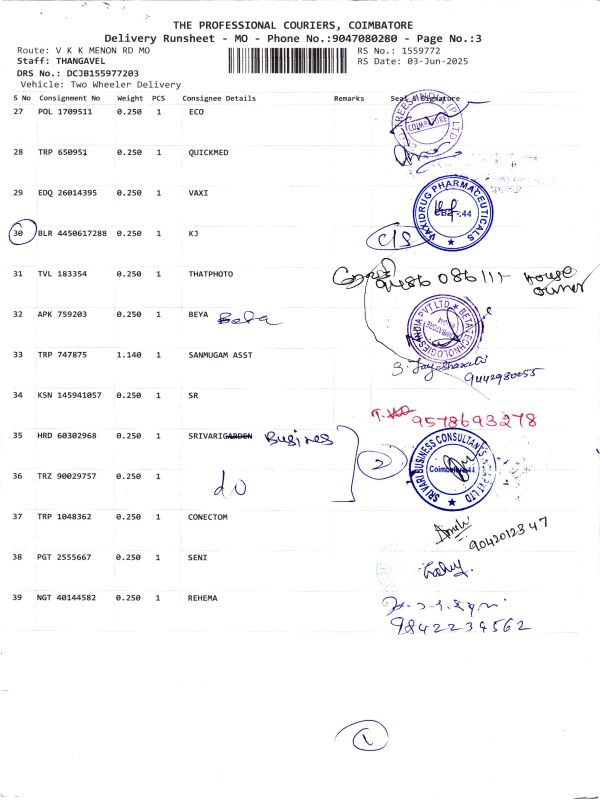 THE PROFESSIONAL COURIERS, COIMBATORE
Delivery Runsheet - MO - Phone No.:9047080280 - Page No.:3
Route: V K K MENON RD MO
RS No.: 1559772
Staff: THANGAVEL
RS Date: 03-Jun-2025
DRS No.: DCJB155977203
Vehicle: Two Wheeler Delivery
S No Consignment No Weight PCS Consignee Details Remarks Seal & Signature
27 POL 1709511 0.250 1 ECO
COIMBATORE
28 TRP 650951 0.250 1 QUICKMED
29 EDQ 26014395 0.250 1 VAXI
VAXIDRUG PHARMACEUTICALS
CBE-44
30 BLR 4450617288 0.250 1 KJ
C/S
31 TVL 183354 0.250 1 THATPHOTO
House
owner
32 APK 759203 0.250 1 BEYA Beta
BETA TECHNOLOGIES INDIA PVT LTD
33 TRP 747875 1.140 1 SANMUGAM ASST
34 KSN 145941057 0.250 1 SR
9578693278
35 HRD 60302968 0.250 1 SRIVARIGARDEN Busines
2
SRI VARI BUSINESS CONSULTANTS INDIA PVT LTD
Coimbatore-44
36 TRZ 90029757 0.250 1
do
37 TRP 1048362 0.250 1 CONECTOM
9042012347
38 PGT 2555667 0.250 1 SENI
39 NGT 40144582 0.250 1 REHEMA
9842234562
1